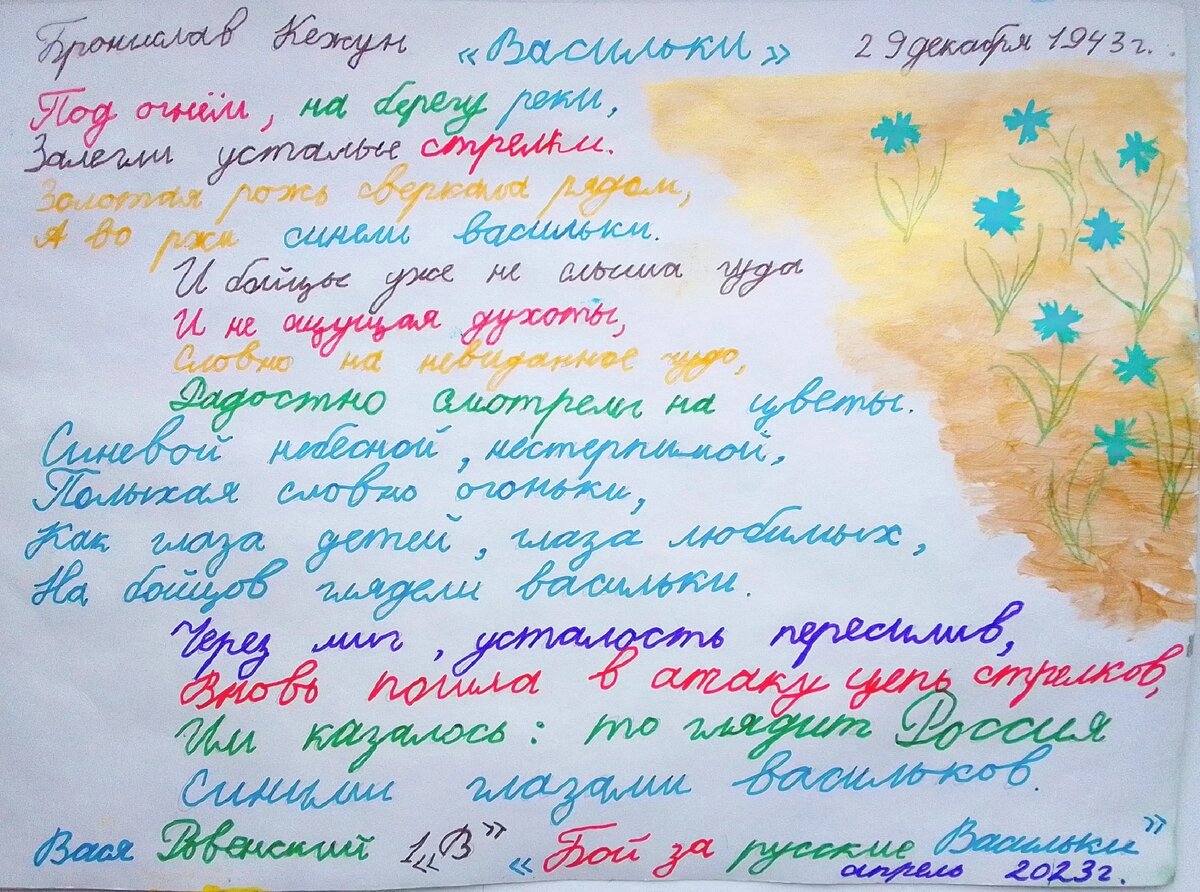 Бронислав Кежун «Васильки» 29 декабря 1943г.
Под огнём, на берегу реки,
Залегли усталые стрелки.
Золотая рожь сверкала рядом,
А во ржи синели васильки.
И бойцы уже не слыша гуда
И не ощущая духоты,
Словно на невиданное чудо,
Радостно смотрели на цветы.
Синевой небесной, нестерпимой,
Полыхая словно огоньки,
Как глаза детей, глаза любимых,
На бойцов глядели васильки.
Через миг, усталость пересилив,
Вновь пошла в атаку цепь стрелков,
Им казалось: то глядит Россия
Синими глазами васильков.
Вася Ровенский 1„В” «Бой за русские Васильки”
апрель 2023г.